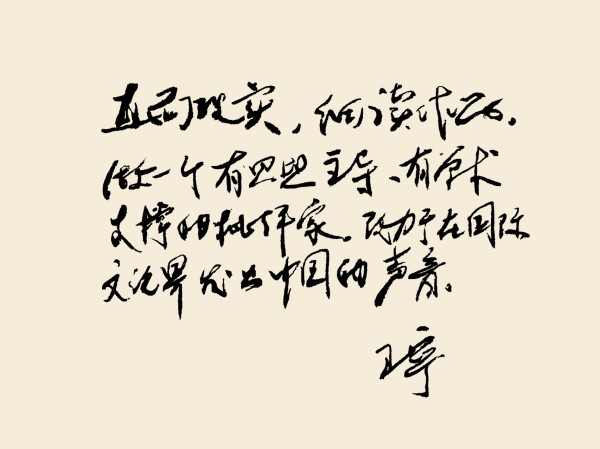 直面现实，细读作品，
做一个有思想主导、有学术
支撑的批评家，致力于在国际
文论界发出中国的声音。
王宁